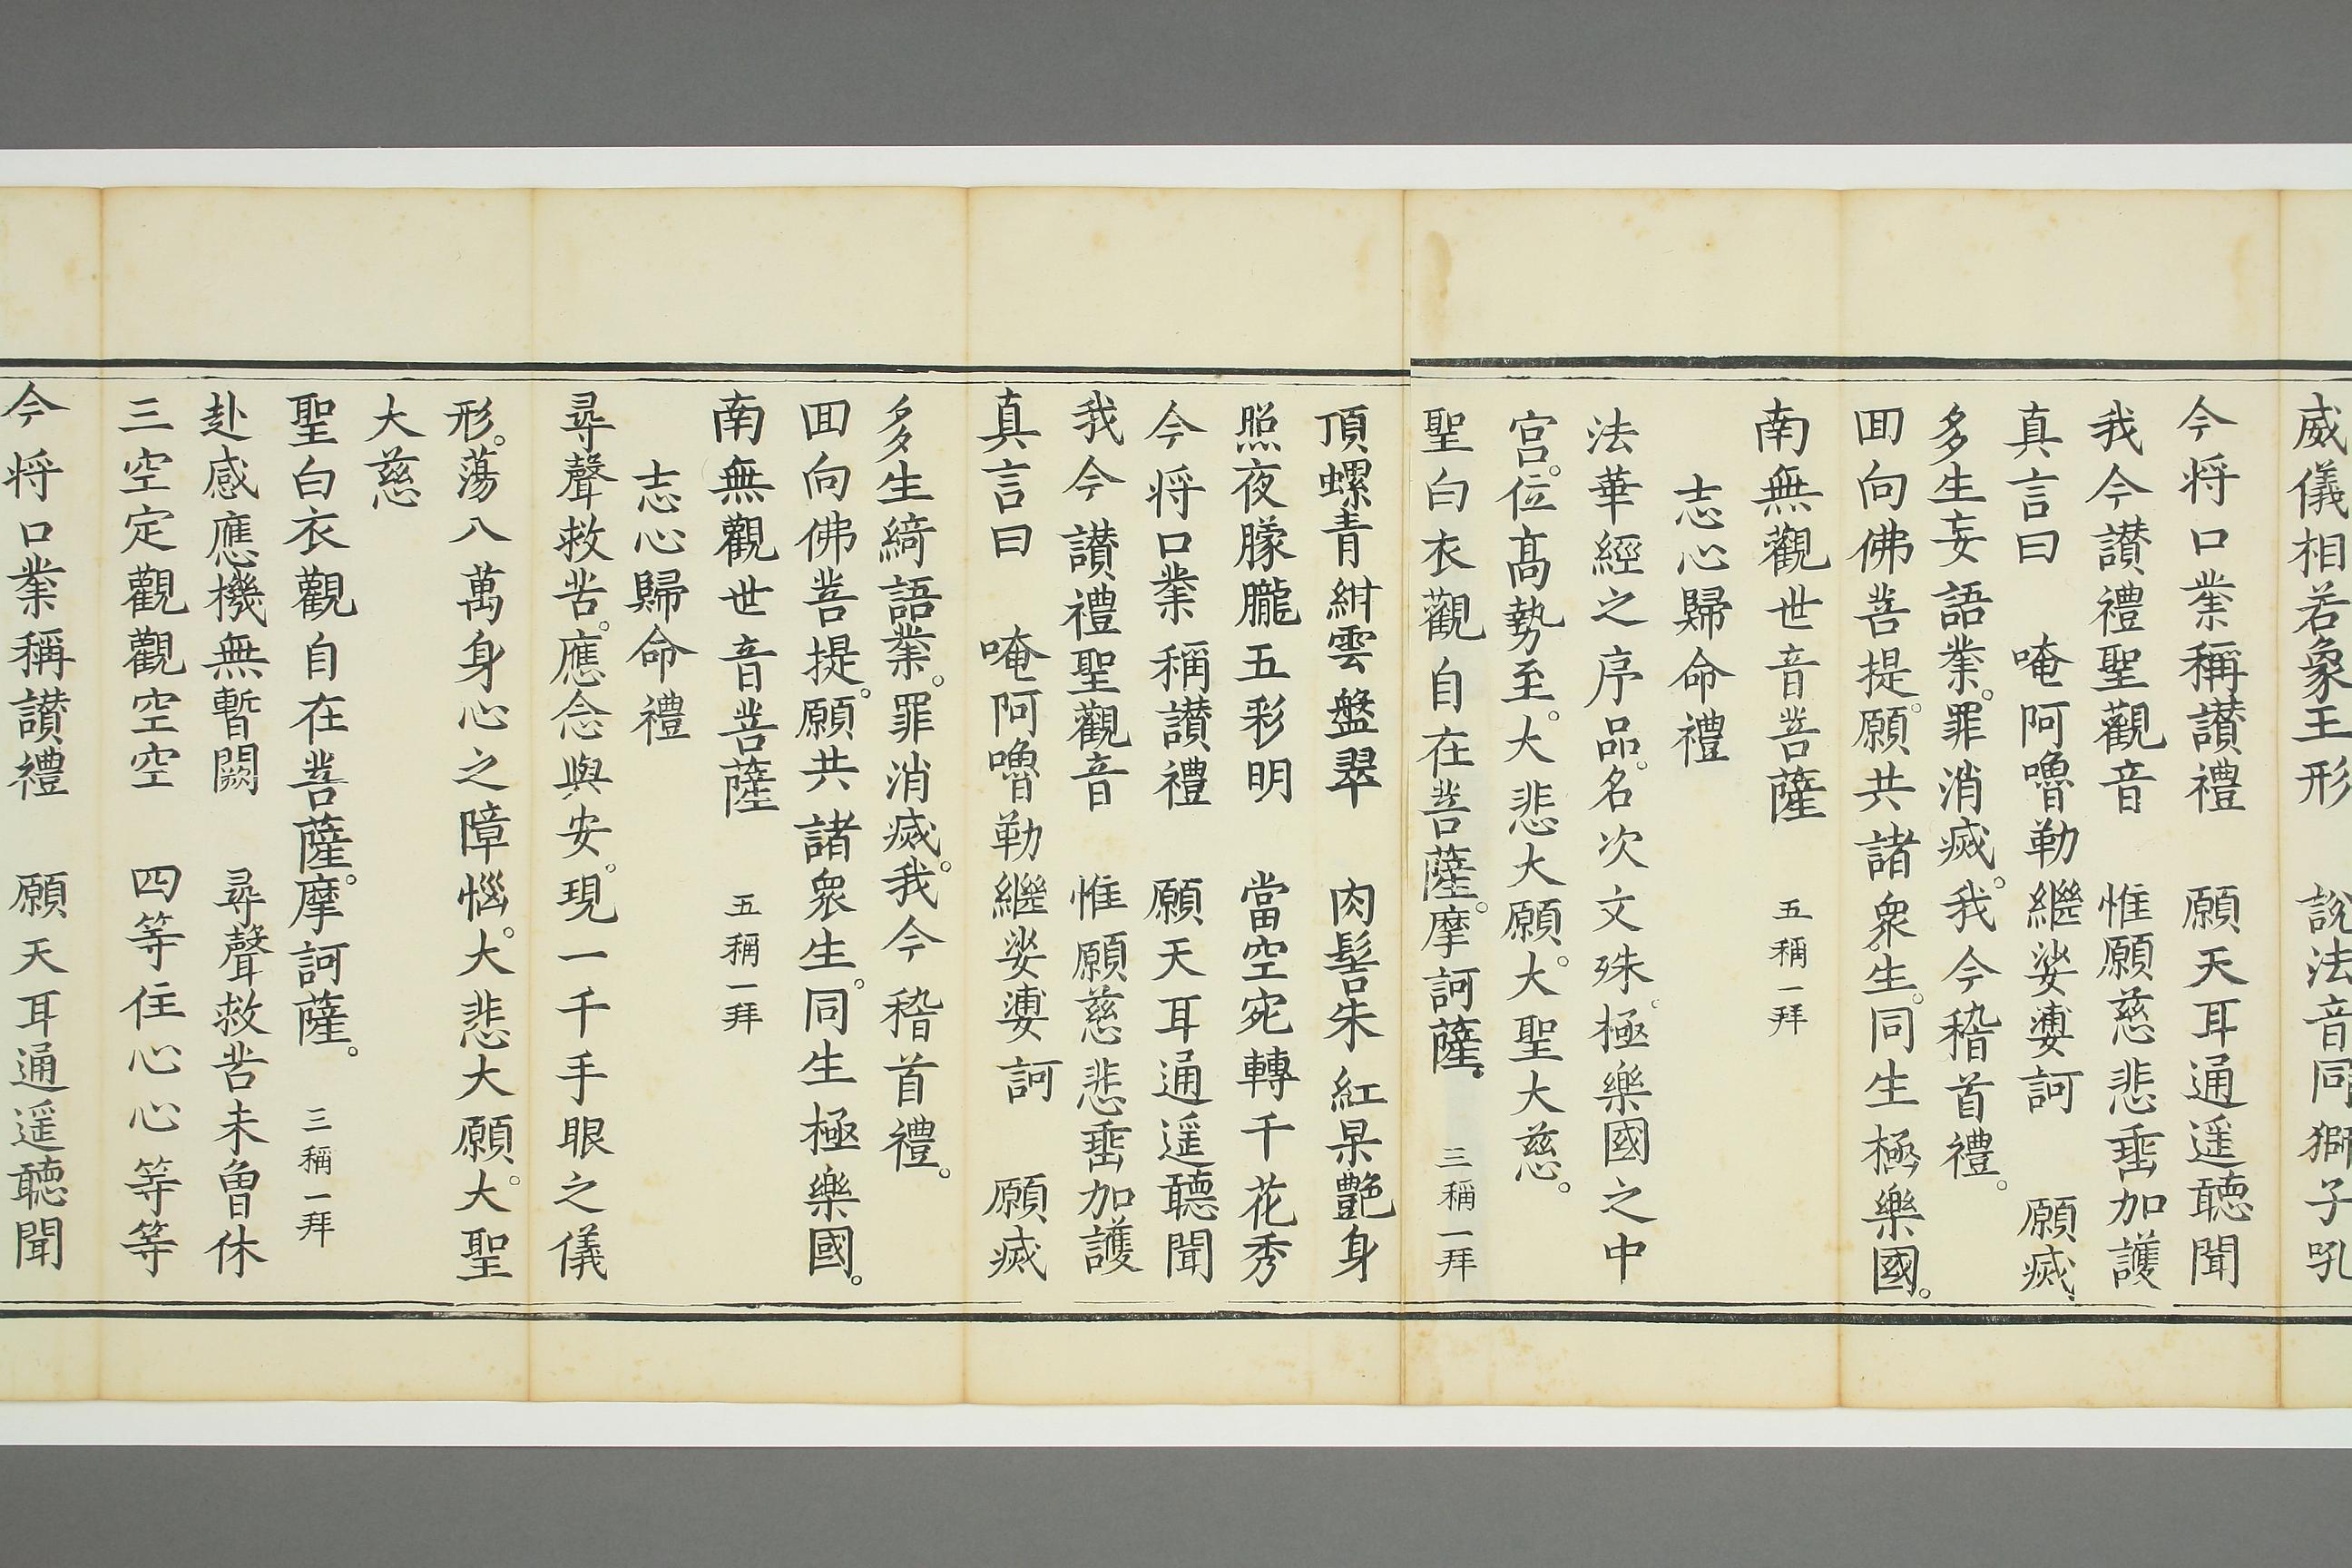 威儀相若象王形　說法音同獅子吼
今將口業稱讃禮　願天耳通遥聽聞
我今讃禮聖觀音　惟願慈悲垂加護
真言曰　唵阿嚕勒繼娑婆訶　願滅
多生妄語業。罪消滅。我今稽首禮。
回向佛菩提。願共諸衆生。同生極樂國。
南無觀世音菩薩　五稱一拜
志心歸命禮
法華經之序品。名次文殊。極樂國之中
宫。位髙勢至。大悲大願。大聖大慈。
聖白衣觀自在菩薩。摩訶薩。　三稱一拜
頂螺青紺雲盤翠　肉髻朱紅杲艶身
照夜朦朧五彩明　當空宛轉千花秀
今將口業稱讃禮　願天耳通遥聽聞
我今讃禮聖觀音　惟願慈悲垂加護
真言曰　唵阿嚕勒繼娑婆訶　願滅
多生綺語業。罪消滅。我今稽首禮。
回向佛菩提。願共諸衆生。同生極樂國。
南無觀世音菩薩　五稱一拜
志心歸命禮
尋聲救苦。應念與安。現一千手眼之儀
形。蕩八萬身心之障惱。大悲大願。大聖
大慈
聖白衣觀自在菩薩。摩訶薩。　三稱一拜
赴感應機無暫闕　尋聲救苦未曾休
三空定觀觀空空　四等住心心等等
今將口業稱讃禮　願天耳通遥聽聞